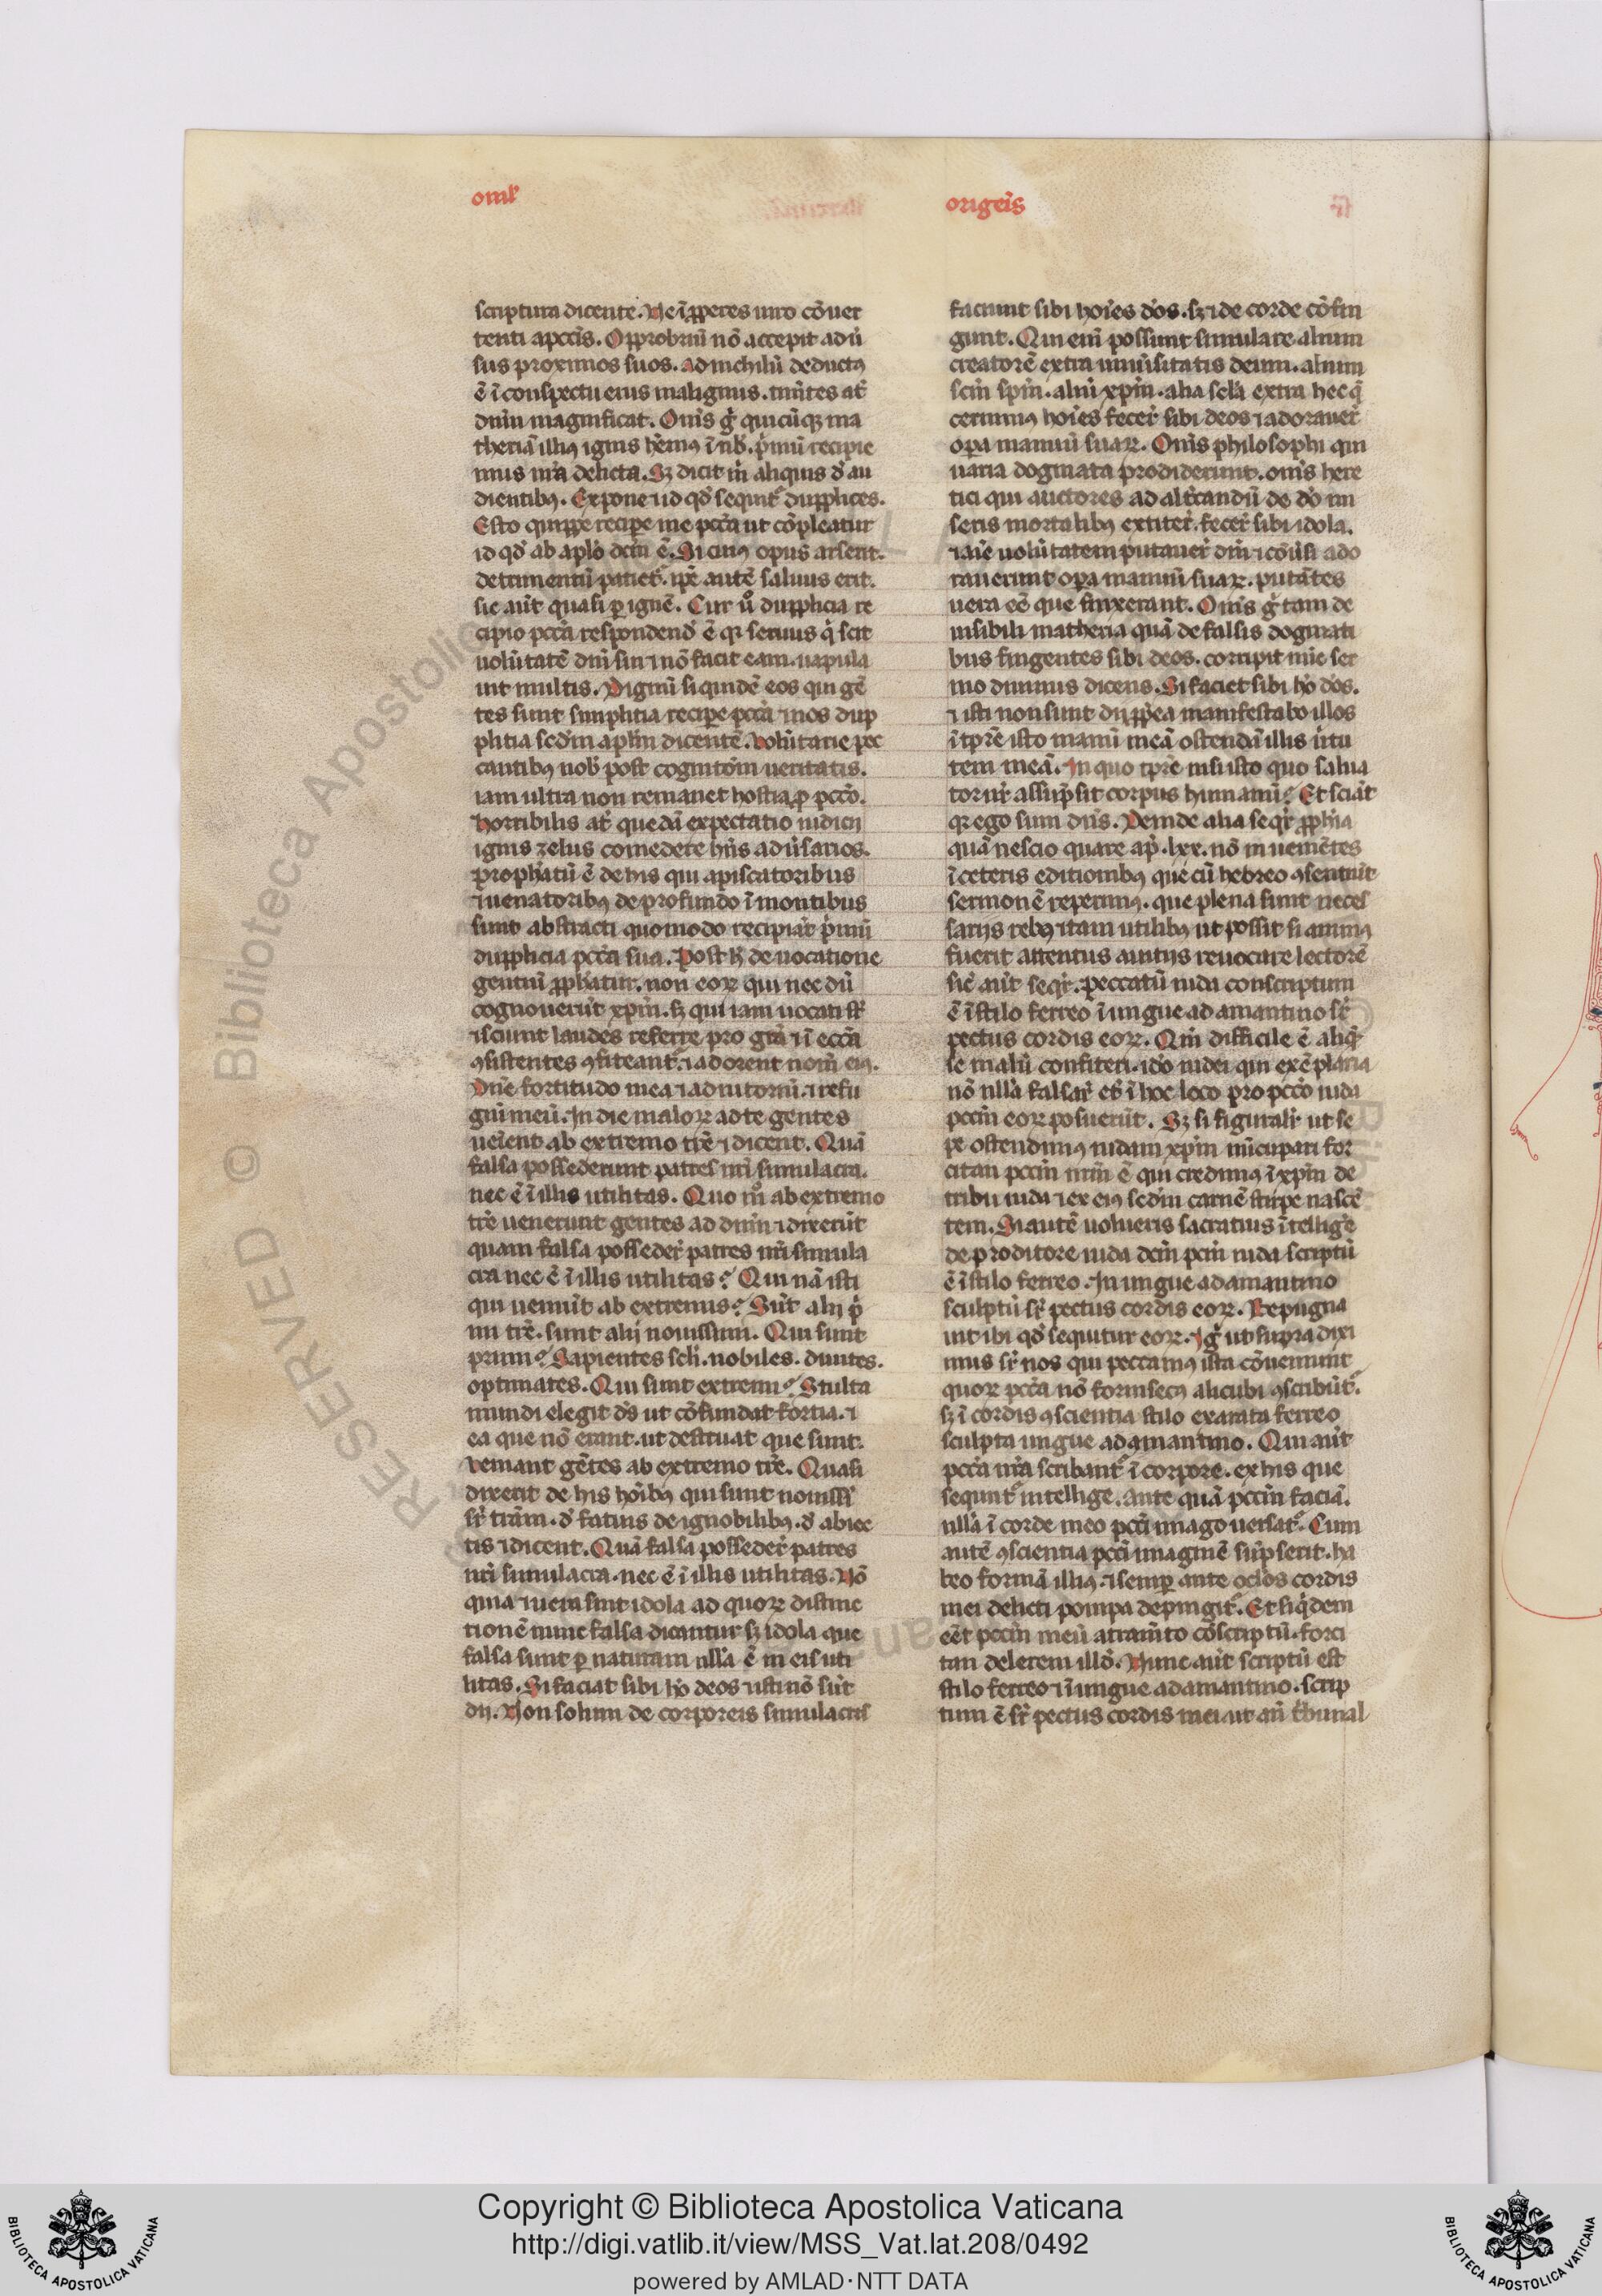 oml'
origeīs
scriptura dicente. Ne īp̱peres uiro cōuer
tenti apccīs. Opprobriū nō accepit adù
sus proximos suos. ad nichilū deductꝯ
ē ī conspectu eius malignus. tim̄tes at̄
dnm̄ magnificat. Om̄s g̊ quicūqꝫ ma
theriā illiꝯ ignis hēmꝯ ī nb̄. p̄mū recipie
mus nr̄a delicta. Sꝫ dicit m̄ aliquis d̓ au
dientibꝯ. Expone id qd̓ sequit᷑ dupplices.
Esto quippe recipe me pccā ut cōpleatur
id qd̓ ab aplō dcm̄ ē. Si cuiꝯ opus arserit.
detrimentū patiet᷑. ip̄e autē saluus erit.
sic aūt quasi ꝑ ignē. Cur ů dupplicia re
cipio pccā respondend̓ ē qꝛ seruus q̄ scit
uolūtatē dnī sui ⁊ nō facit eam. uapula
uit multis. Dignū siquidē eos qui gē
tes sunt simplitia recipe pccā ⁊ nos dup
plitia scdm̄ aplm̄ dicentē. Volūtarie pec
cantibꝯ nob̄ post cognitōm ueritatis.
iam ultra non remanet hostia ꝓ pccō.
horribilis at̄ quedā expectatio iudicij
ignis zelus comedere hn̄s adùsarios.
prophatū ē de his qui apiscatoribus
⁊ uenatoribꝯ de profundo ī montibus
sunt abstracti quomodo recipiāt p̄mū
dupplicia pccā sua. Post h̄ de uocatione
gentiū ꝓphatur. non eoꝝ qui nec dū
cognouerūt xpm̄. sꝫ qui iam uocati st̄
⁊ sciunt laudes referre pro gr̄a ⁊ ī eccā
ꝯsistentes ꝯfiteant᷑. ⁊ adorent nom̄ eiꝯ.
Dn̄e fortitudo mea ⁊ adiutoriū. ⁊ refu
giū meū. In die maloꝝ ad te gentes
ueient ab extremo tr̄e ⁊ dicent. Quā
falsa possederunt patres nr̄i simulacra.
nec ē ī illis utilitas. Quo m̊ ab extremo
tr̄e uenerunt gentes ad dnm̄ ⁊ dixerūt
quam falsa posseder̄ patres nr̄i simula
cra nec ē ī illis utilitas? Qui nā isti
qui ueniūt ab extremis? Sūt alij p̄
mi tr̄e. sunt alij nouissimi. Qui sunt
primi? Sapientes scl̄i. nobiles. diuites.
optimates. Qui sunt extremi? Stulta
mundi elegit ds̄ ut cōfundat fortia. ⁊
ea que nō erant. ut destruat que sunt.
Veniant gētes ab extremo tr̄e. Quasi
dixerit de his hoībꝯ qui sunt nouissī
sr̄ trām. d̓ fatuis de ignobilibꝯ. d̓ abiec
tis ⁊ dicent. Quā falsa posseder̄ patres
nr̄i simulacra. nec ē ī illis utilitas. Nō
quia ⁊ uera sint idola ad quoꝝ distinc
tionē nunc falsa dicantur sꝫ idola que
falsa sunt ꝑ naturam nllā ē in eis uti
litas. Si faciat sibi hō deos ⁊ isti nō sūt
dij. Non solum de corporeis simulacris
faciunt sibi hoīes dōs. sꝫ ⁊ de corde cōfin
gunt. Qui enī possunt simulare alium
creatorē extra uniùsitatis deum. alium
scm̄ spm̄. aliū xpm̄. alia scl̄a extra hec q̄
cernimꝯ hoīes fecer̄ sibi deos ⁊ adorauer̄
opa manuū suaꝝ. Om̄s philosophi qui
uaria dogmata prodiderunt. om̄s here
tici qui auctores ad altercandū de dō mi
seris mortalibꝯ extiter̄. fecer̄ sibi idola.
⁊ aīe uolūtatem putauer̄ dm̄ ⁊ cōùsi ado
rauerunt opa manuū suaꝝ. putātes
uera eē que finxerant. Om̄s g̊ tam de
insibili matheria quā de falsis dogmati
bus fingentes sibi deos. corripit nūc ser
mo diuinus dicens. Si faciet sibi hō dōs.
⁊ isti non sunt dij ꝓpea manifestabo illos
ī tpr̄e isto manū meā ostendā illis ùtu
tem meā. In quo tpr̄e nisi isto quo salua
tor nr̄ assūpsit corpus humanū? Et sciāt
qꝛ ego sum dn̄s. Deinde alia seqr̄ ꝓphīa
quā nescio quare ap̄ .lxx. nō inueniētes
ī ceteris editionibꝯ que cū hebreo ꝯsentiūt
sermonē reperimꝯ. que plena sunt neces
sarijs rebꝯ ⁊ tam utilibꝯ ut possit si animꝯ
fuerit attentus auitijs reuocare lectorē
sic aūt seqr̄. peccatū iuda conscriptum
ē ī stilo ferreo ī ungue adamantino sr̄
pectus cordis eoꝝ. Qm̄ difficile ē aliq̄
se malū confiteri. idō iudei qui exēplaria
nō nllā falsar̄ et̄ ī hoc loco pro pccō iuda
pccm̄ eoꝝ posuerūt. Sꝫ si figuralr̄ ut se
pe ostendimꝯ iudam xpm̄ nūcupari for
citan pccm̄ nrm̄ ē qui credimꝯ ī xpm̄ de
tribu iuda ⁊ ex eiꝯ scdm̄ carnē stirpe nascē
tem. Si autē uolueris sacratius ītellige
de proditore iuda dcm̄ pcm̄ iuda scriptū
ē ī stilo ferreo. In ungue adamantino
sculptū sr̄ pectus cordis eoꝝ. Repugna
uit ibi qd̓ sequitur eoꝝ. Ig̊ ut supra dixi
mus sr̄ nos qui peccamꝯ ista cōueniunt
quoꝝ pccā nō forinsecꝯ alicubi ꝯscribūt᷑.
sꝫ ī cordis ꝯscientia stilo exarata ferreo
sculpta ungue adamantino. Qui aūt
pccā nr̄a scribant᷑ ī corpore. ex his que
sequnt᷑ intellige. ante quā pccm̄ faciā.
nllā ī corde meo pccī imago uersat᷑. Cum
autē ꝯscientia pccī imaginē sūpserit. ha
beo formā illiꝯ. ⁊ semꝑ ante oclōs cordis
mei delicti pompa depingit᷑. Et siq̄dem
eēt pccm̄ meū atram̄to cōscriptū. forci
tan delerem illd̓. Nunc aūt scriptū est
stilo ferreo ⁊ ī ungue adamantino. scrip
tum ē sr̄ pectus cordis mei. ut an̄ tribunal
Copyright © Biblioteca Apostolica Vaticana
http://digi.vatlib.it/view/MSS_Vat.lat.208/0492
powered by AMLAD·NTT DATA
BIBLIOTECA APOSTOLICA VATICANA
BIBLIOTECA APOSTOLICA VATICANA